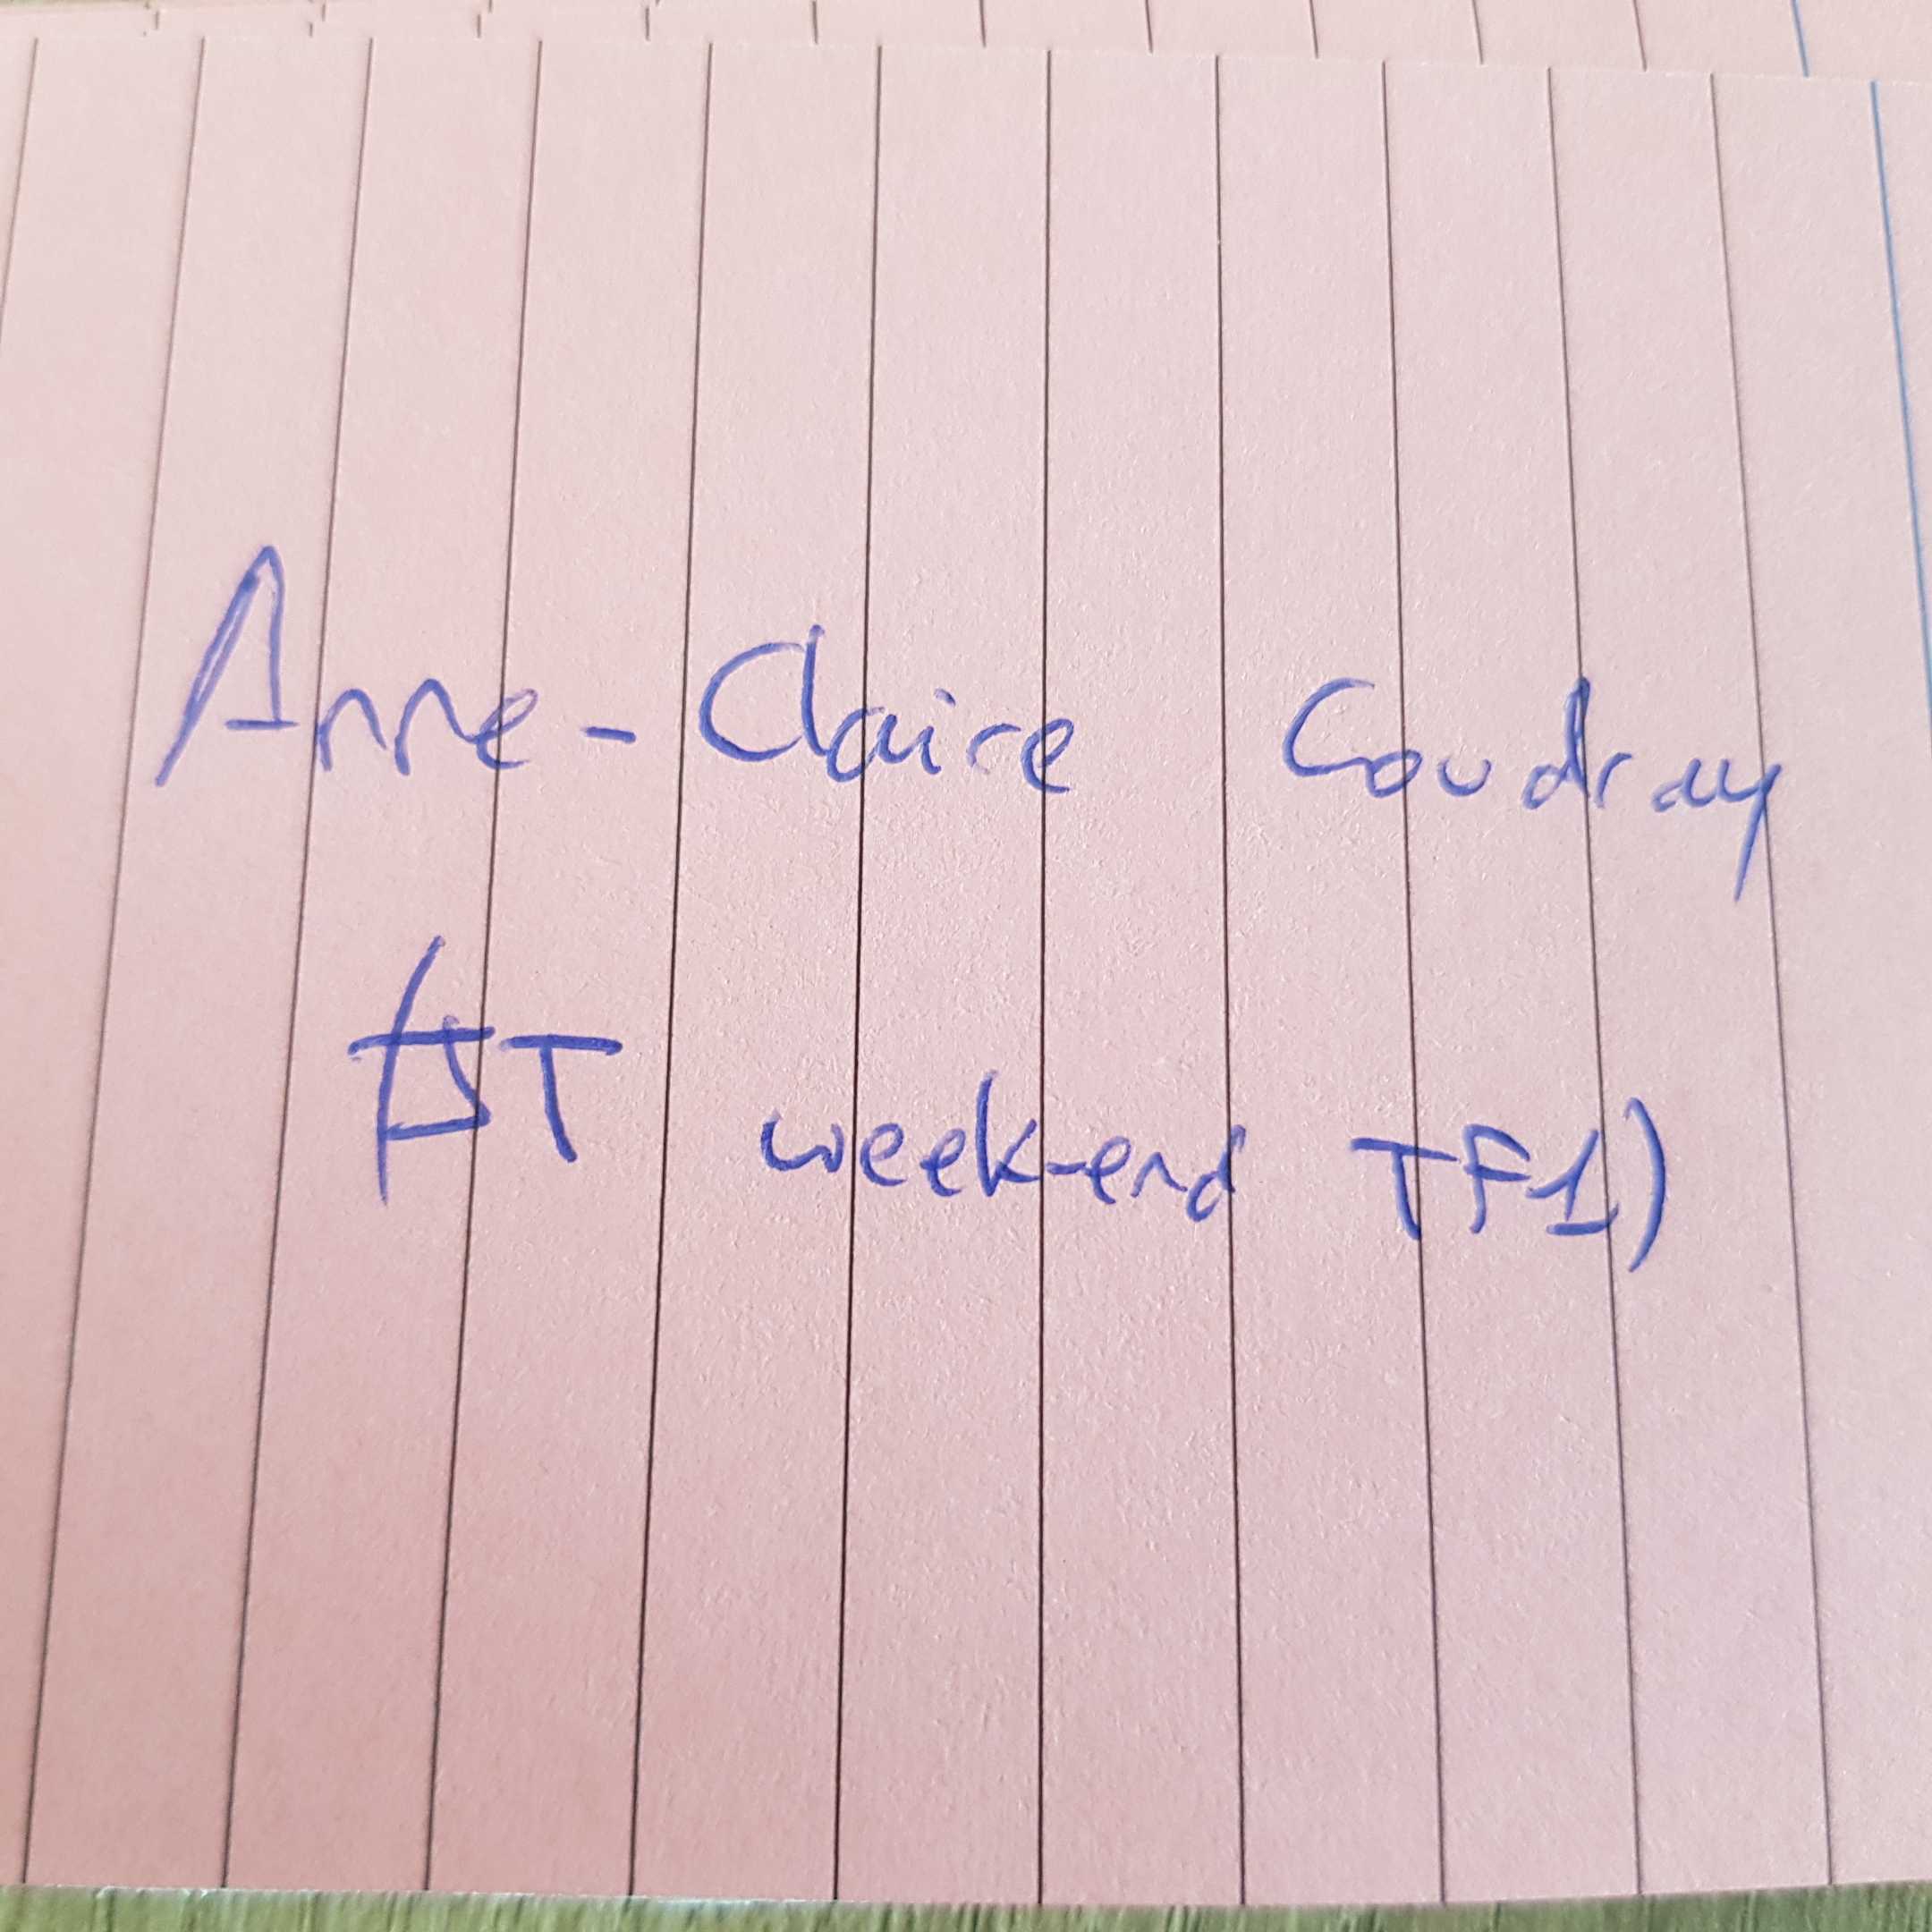 Anne-Claire Coudray
(JT week-end TF1)